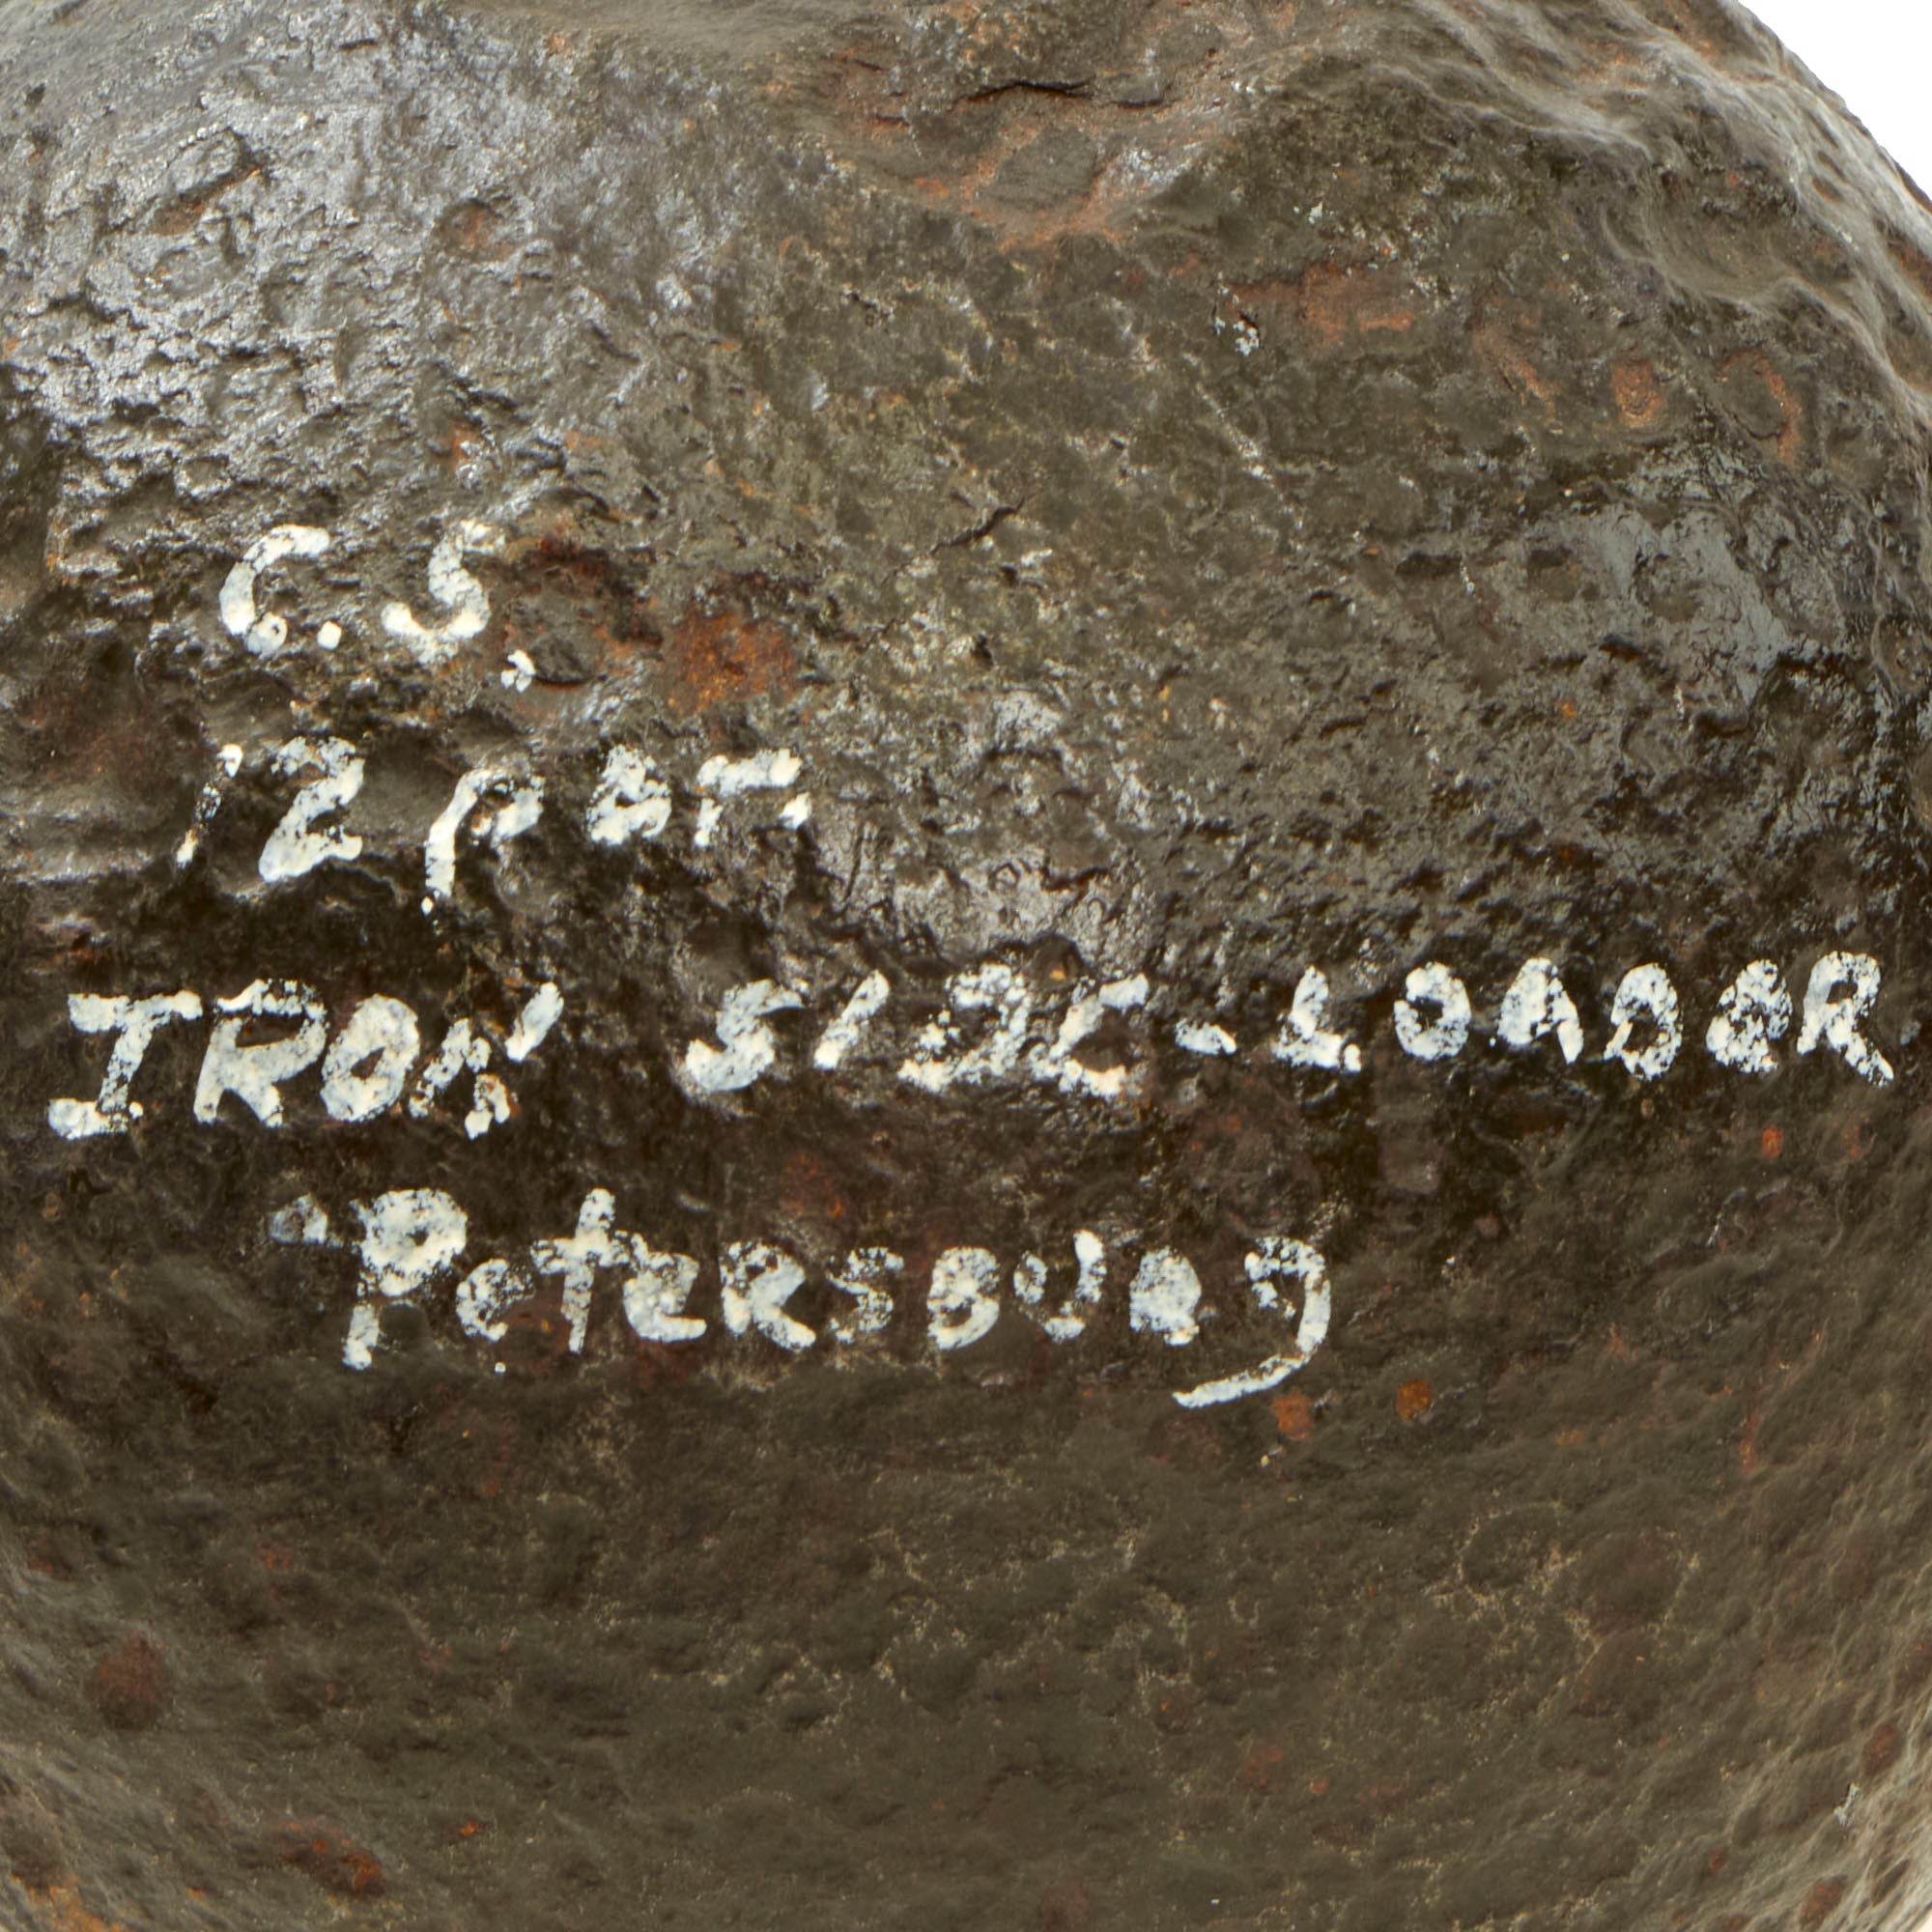 C.S.
12 pdr.
IRON SIDE-LOADER
Petersburg